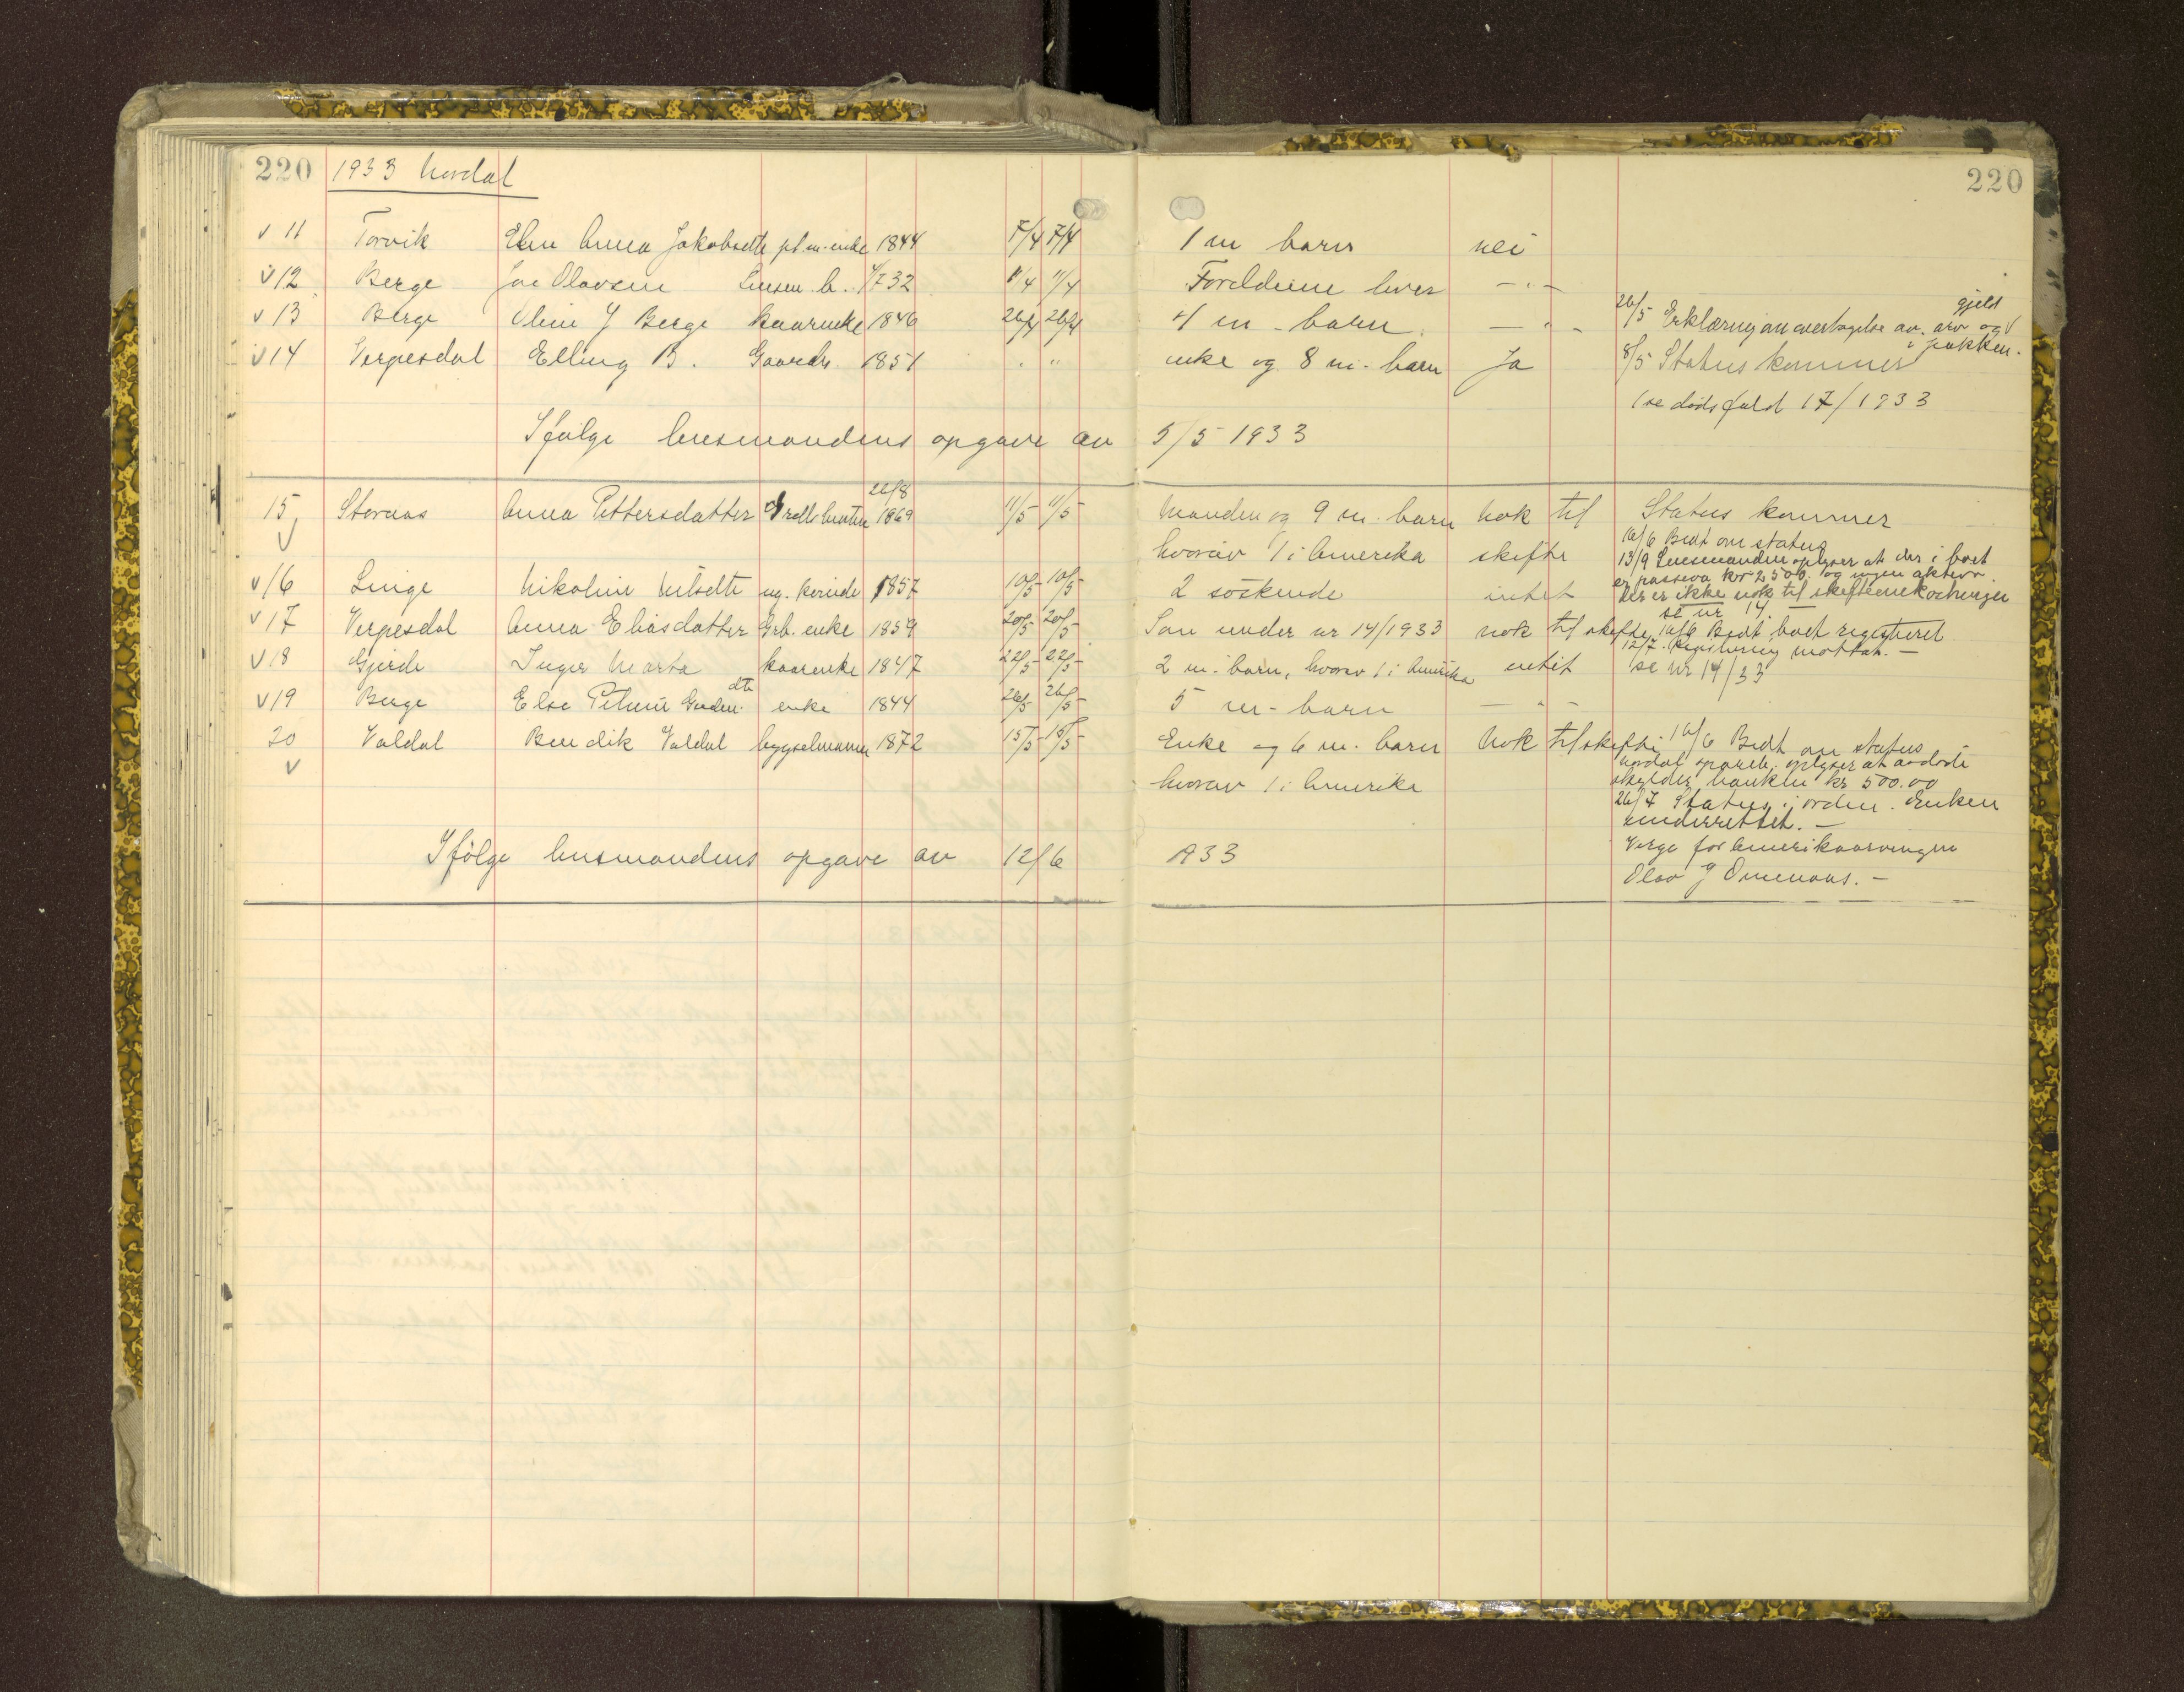 220 1933 Nordal 220
v 11 Torvik Anna Jakobsdtr enke 1844 7/4 7/4 1 m barn nei
v 12 Berge Olavsen 4/7 32 11/4 11/4 Foreldrene lever - " -
v 13 Berge Oline J Berge kaarenke 1846 26/4 26/4 4 m - barn - " - 26/5 Erklæring om overtagelse av arv og gjeld
i pakken.
v 14 Verpesdal Elling B. Gaardbr. 1851 " " enke og 8 m. barn Ja 8/5 Status kommer
(se dødsfald 17/1933
Ifølge lensmandens opgave av 5/5 1933
15 Stornas Anna Pettersdatter 22/8 1869 11/5 11/5 Manden og 9 m. barn nok til Status kommer
v hvorav 1 i Amerika skifte 16/6 Bedt om status
13/9 Lensmanden oplyser at der i boet
er passiva kr 2500.00 og ingen aktiva.
der er ikke nok til skifteomkostninger
v 16 Linge Nikoline Nilsdtr ug. kvinde 1857 10/5 10/5 2 söskende intet
v 17 Verpesdal Anna Eliasdatter Grb. enke 1859 20/5 20/5 Som under nr 14/1933 nok til skifte se nr 14
16/6 Bedt boet registreret
12/7. Registrering mottat. -
v 18 Gjerde Inger Marta kaarenke 1847 22/5 22/5 2 m. barn, hvorav 1 i Amerika intet se nr 14/33
v 19 Berge Else Petrine dtr enke 1844 26/5 26/5 5 m - barn - " -
20 Valdal Bendik Valdal bygselmann 1872 15/5 15/5 Enke og 6 m. barn nok til skifte 16/6 Bedt om status
v hvorav 1 i Amerika Nordal spareb. oplyser at avdøde
skylder banken kr 500.00
26/7 Status i orden. Enken
underrettet. -
Ifølge lensmandens opgave av 12/6 1933 Verge for Amerikaarvingen
Olav J Omenaas. -